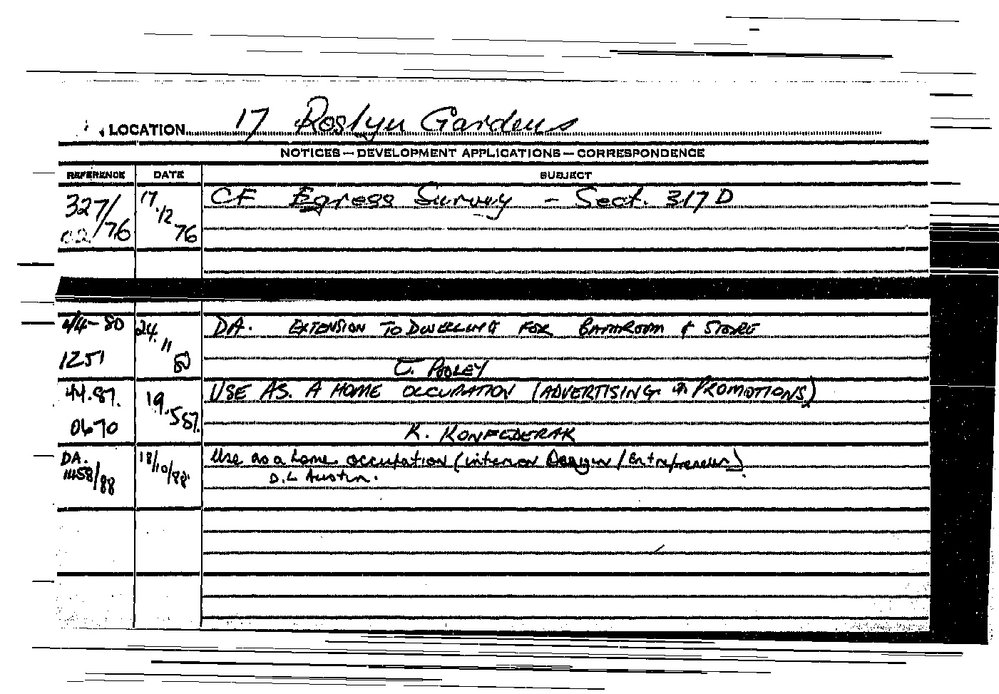 LOCATION 17 Roslyn Gardens
NOTICES — DEVELOPMENT APPLICATIONS — CORRESPONDENCE
REFERENCE DATE SUBJECT
327/ 17 CF Egress Survey - Sect. 317D
02/76 12 76
4/4-80 24 DA. EXTENSION TO DWELLING FOR BATHROOM & STORE
1251 11 80 POOLEY
44.87. 19 USE AS. A HOME OCCUPATION (ADVERTISING & PROMOTIONS)
0670 587. K. KONFEDERAK
DA. 18/10/88 Use as a home occupation (interior Design / Entrepreneur)
1458/88 D.L Austin.